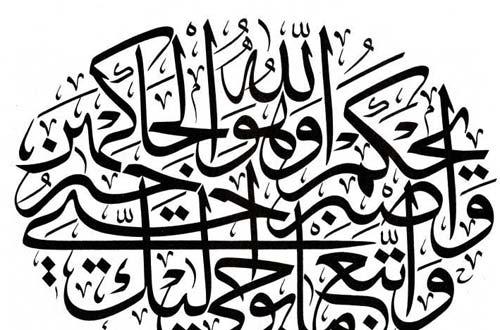 واتبع ما يوحى إليك
واصبر حتى
يحكم الله وهو خير الحاكمين